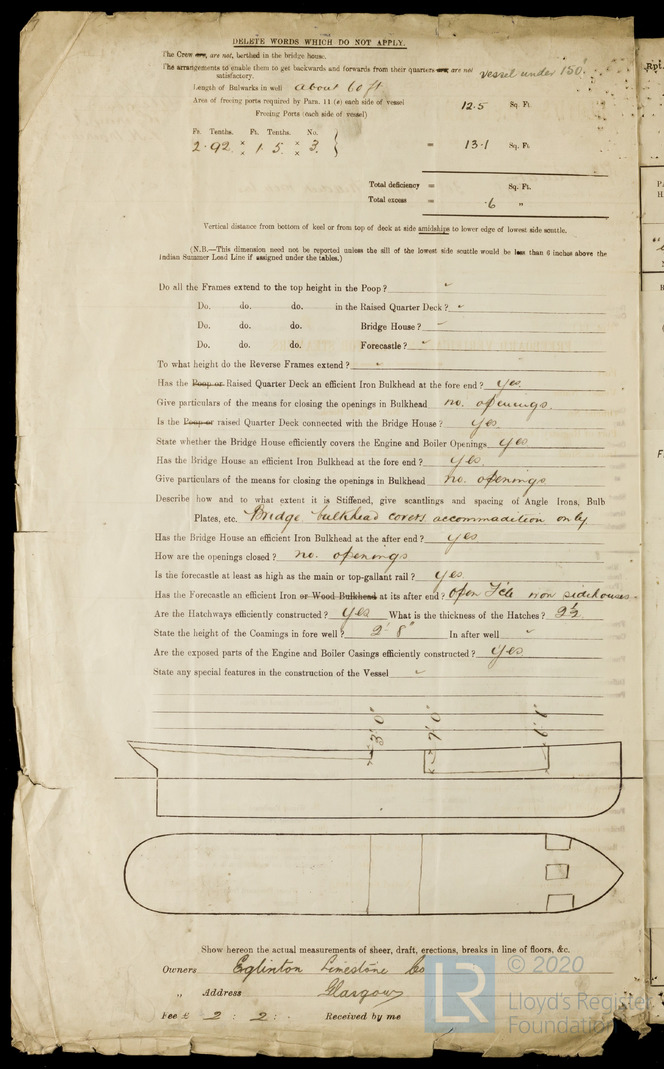 DELETE WORDS WHICH DO NOT APPLY.
The Crew are, are not, berthed in the bridge house.
The arrangements to enable them to get backwards and forwards from their quarters are, are not vessel under 150'.
satisfactory.
Length of Bulwarks in well about 60 ft
Area of freeing ports required by Para. 11 (e) each side of vessel 12.5 Sq. Ft.
Freeing Ports (each side of vessel)
Ft. Tenths. Ft. Tenths. No.
2.92 × 1.5 × 3 } = 13.1 Sq. Ft.
Total deficiency = Sq. Ft.
Total excess = .6 "
Vertical distance from bottom of keel or from top of deck at side amidships to lower edge of lowest side scuttle.
(N.B.—This dimension need not be reported unless the sill of the lowest side scuttle would be less than 6 inches above the
Indian Summer Load Line if assigned under the tables.)
Do all the Frames extend to the top height in the Poop? ✓
Do. do. do. in the Raised Quarter Deck? ✓
Do. do. do. Bridge House? ✓
Do. do. do. Forecastle? ✓
To what height do the Reverse Frames extend? ✓
Has the Poop or Raised Quarter Deck an efficient Iron Bulkhead at the fore end? yes.
Give particulars of the means for closing the openings in Bulkhead no. openings.
Is the Poop or raised Quarter Deck connected with the Bridge House? yes
State whether the Bridge House efficiently covers the Engine and Boiler Openings yes
Has the Bridge House an efficient Iron Bulkhead at the fore end? yes.
Give particulars of the means for closing the openings in Bulkhead no. openings
Describe how and to what extent it is Stiffened, give scantlings and spacing of Angle Irons, Bulb
Plates, etc. Bridge bulkhead covers accommadition only
Has the Bridge House an efficient Iron Bulkhead at the after end? yes
How are the openings closed? no. openings
Is the forecastle at least as high as the main or top-gallant rail? yes
Has the Forecastle an efficient Iron or Wood Bulkhead at its after end? open Fcle iron sidehouses
Are the Hatchways efficiently constructed? yes What is the thickness of the Hatches? 2½
State the height of the Coamings in fore well? 2' 8" In after well ✓
Are the exposed parts of the Engine and Boiler Casings efficiently constructed? yes
State any special features in the construction of the Vessel ✓
3' 0"
7' 0"
Show hereon the actual measurements of sheer, draft, erections, breaks in line of floors, &c.
Owners Eglinton Limestone Co
„ Address Glasgow
Fee £ 2 : 2 : - Received by me
LR © 2020
Lloyd's Register
Foundation
Rpt.